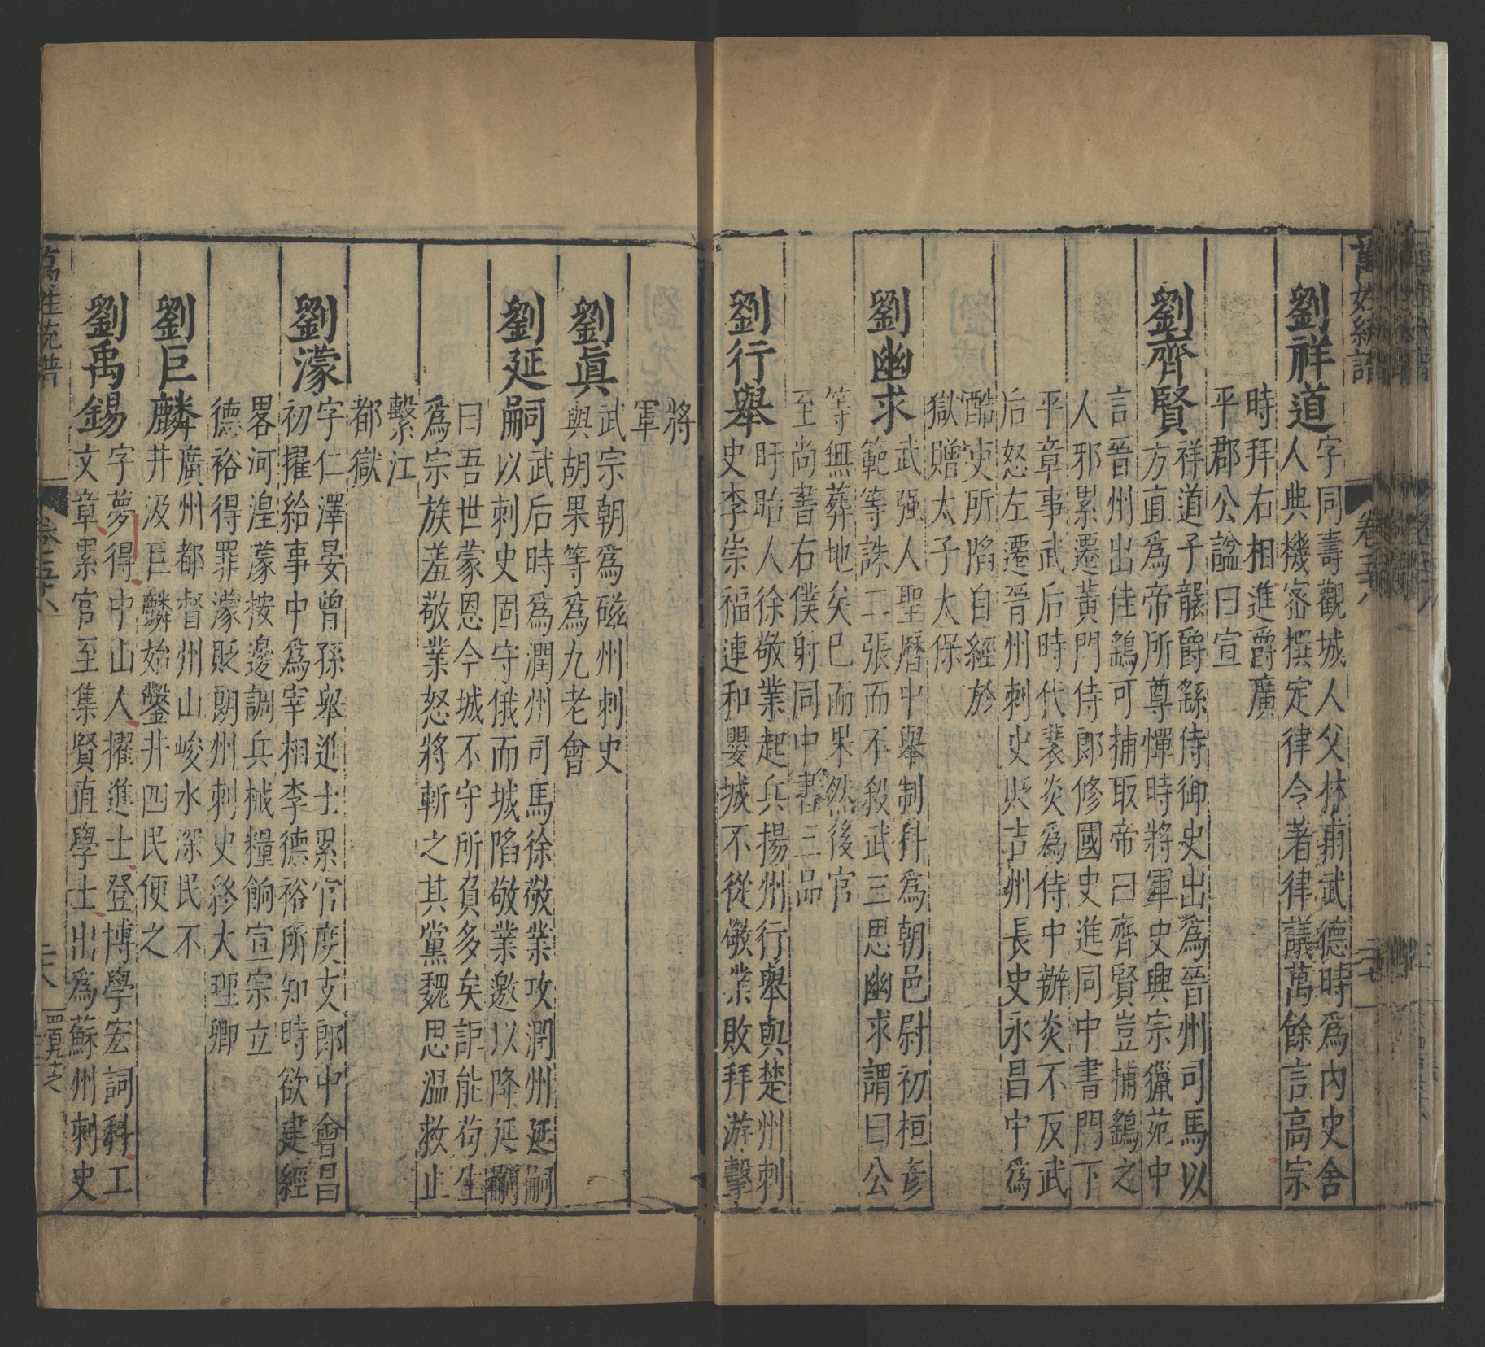 萬姓統譜 卷五十八
劉祥道
字同壽觀城人父林甫武德時爲內史舍
人典機密撰定律令著律議萬餘言高宗
時拜右相進爵廣
平郡公諡曰宣
劉齊賢
祥道子襲爵繇侍御史出爲晉州司馬以
方直爲帝所尊憚時將軍史興宗獵苑中
言晉州出佳鷂可捕取帝曰齊賢豈捕鷂之
人邪累遷黃門侍郎修國史進同中書門下
平章事武后時代裴炎爲侍中辦炎不反武
后怒左遷晉州刺史貶吉州長史永昌中爲
酷吏所陷自經於
獄贈太子太保
劉幽求
武强人聖曆中舉制科爲朝邑尉初桓彥
範等誅二張而不殺武三思幽求謂曰公
等無葬地矣巳而果然後官
至尚書右僕射同中書三品
劉行舉
盱眙人徐敬業起兵揚州行舉與楚州刺
史李崇福連和嬰城不從敬業敗拜游擊
將
軍
劉眞
武宗朝爲磁州刺史
與胡果等爲九老會
劉延嗣
武后時爲潤州司馬徐敬業攻潤州延嗣
以刺史固守俄而城陷敬業邀以降延嗣
曰吾世蒙恩今城不守所負多矣詎能苟生
爲宗族羞敬業怒將斬之其黨魏思溫救止
繫江
都獄
劉濛
字仁澤晏曾孫舉進士累官度支郎中會昌
初擢給事中爲宰相李德裕所知時欲建經
畧河湟濛按邊調兵械糧餉宣宗立
德裕得罪濛貶朗州刺史移大理卿
劉巨麟
廣州都督州山峻水深民不
井汲巨麟始鑿井四民便之
劉禹錫
字夢得中山人擢進士登博學宏詞科工
文章累官至集賢直學士出爲蘇州刺史
萬姓統譜 卷五十八